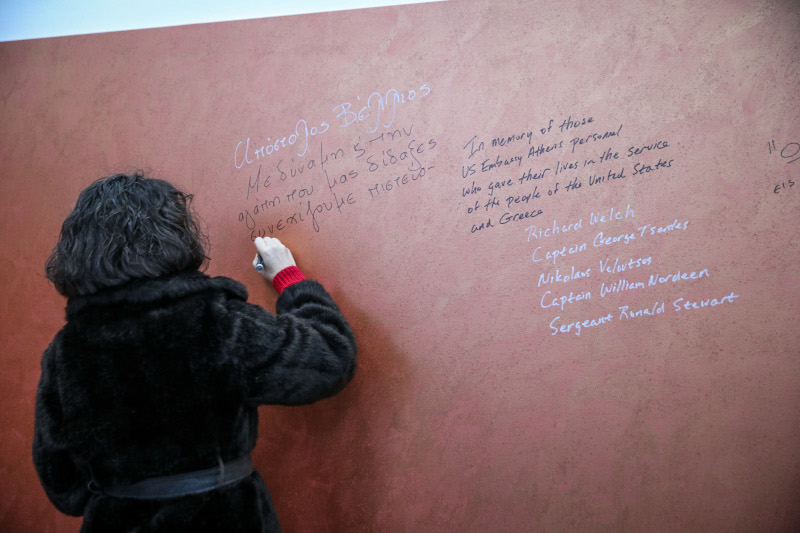 Απόστολος Βέλλιος
Με δύναμη & την
αγάπη που μας δίδαξες
συνεχίζουμε
In memory of those
US Embassy Athens personnel
who gave their lives in the service
of the people of the United States
and Greece
Richard Welch
Captain George Tsantes
Nikolaos Veloutsos
Captain William Nordeen
Sergeant Ronald Stewart